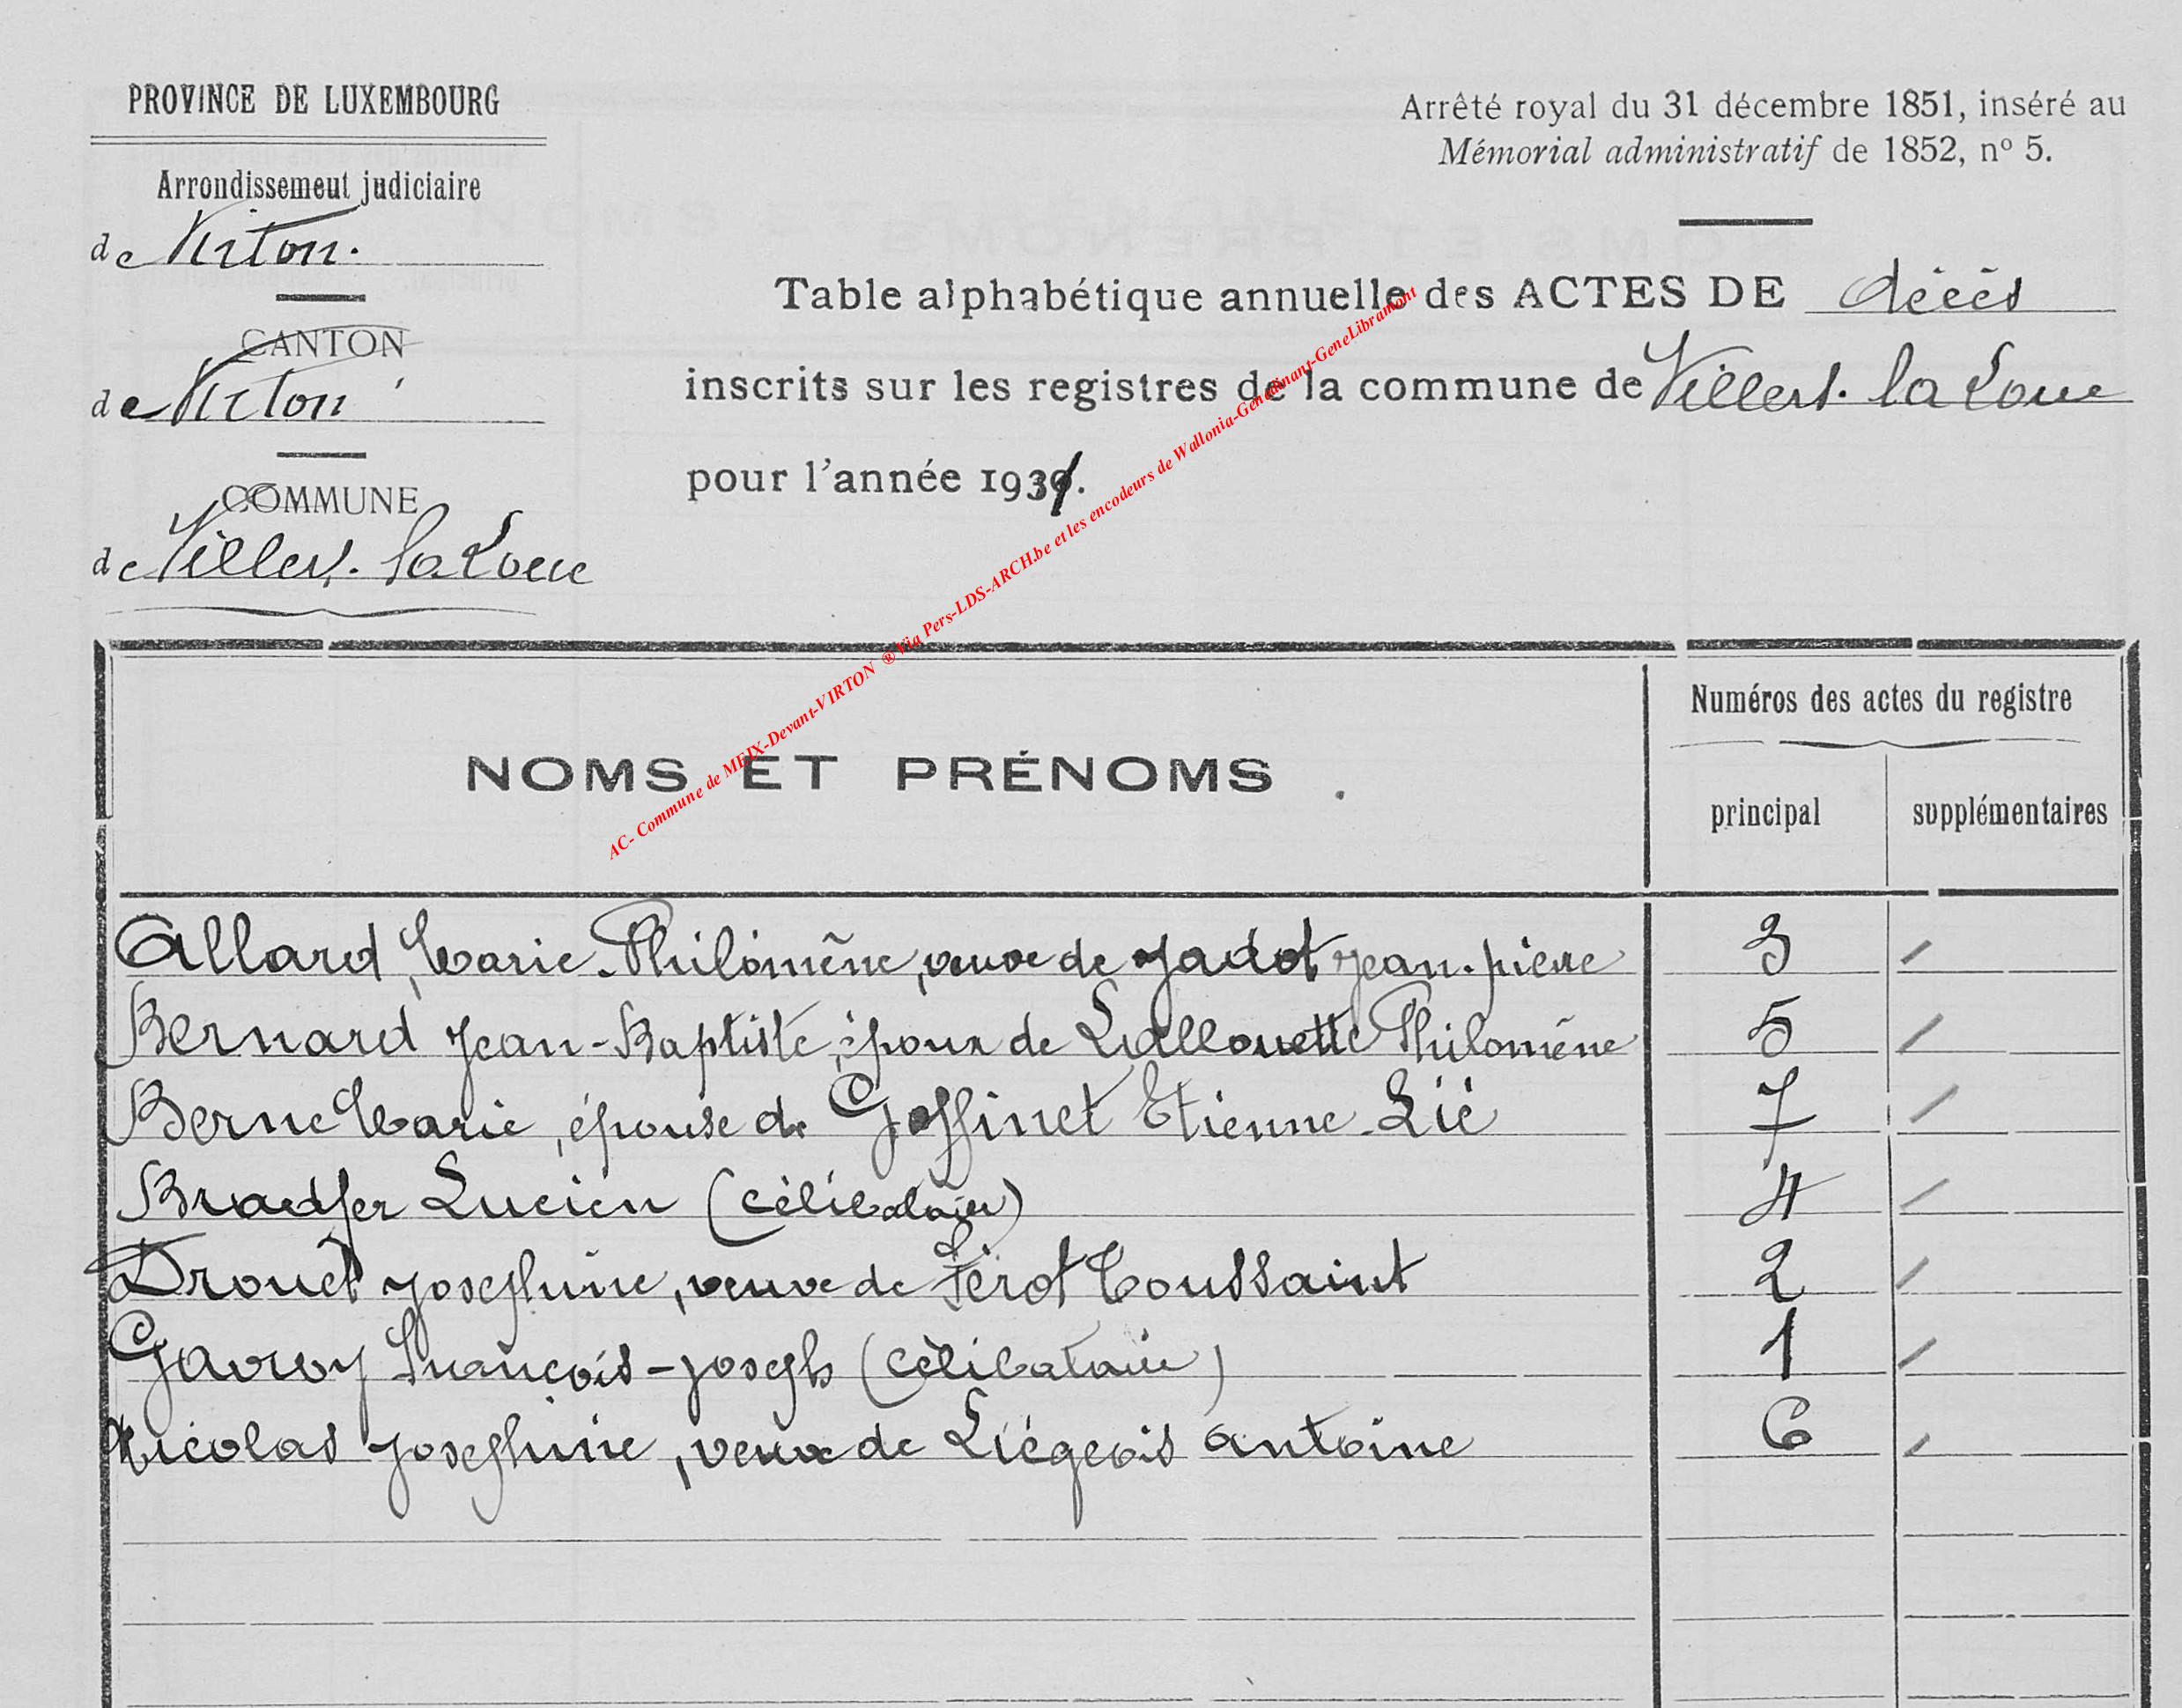 PROVINCE DE LUXEMBOURG
Arrondissement judiciaire
de Virton.
CANTON
de Virton
COMMUNE
de Villers-la-Loue
Arrêté royal du 31 décembre 1851, inséré au
Mémorial administratif de 1852, nº 5.
Table alphabétique annuelle des ACTES DE décès
inscrits sur les registres de la commune de Villers-la Loue
pour l'année 193
AC- Commune de MEIX-Devant-VIRTON ® Via Pers-LDS-ARCH.be et les encodeurs de Wallonia-Genedinant-GeneLibramont
NOMS ET PRÉNOMS
Numéros des actes du registre
principal supplémentaires
Allard, Marie-Philomène, veuve de Jadot Jean-pierre 3 /
Bernard Jean-Baptiste, époux de Lallouette Philomène 5 /
Berne Marie, épouse de Goffinet Etienne-Lié 7 /
Bradfer Lucien (célibataire) 4 /
Drouet Joséphine, veuve de Férot Toussaint 2 /
Gavroy François-Joseph (célibataire) 1 /
Nicolas Joséphine, veuve de Liégeois Antoine 6 /